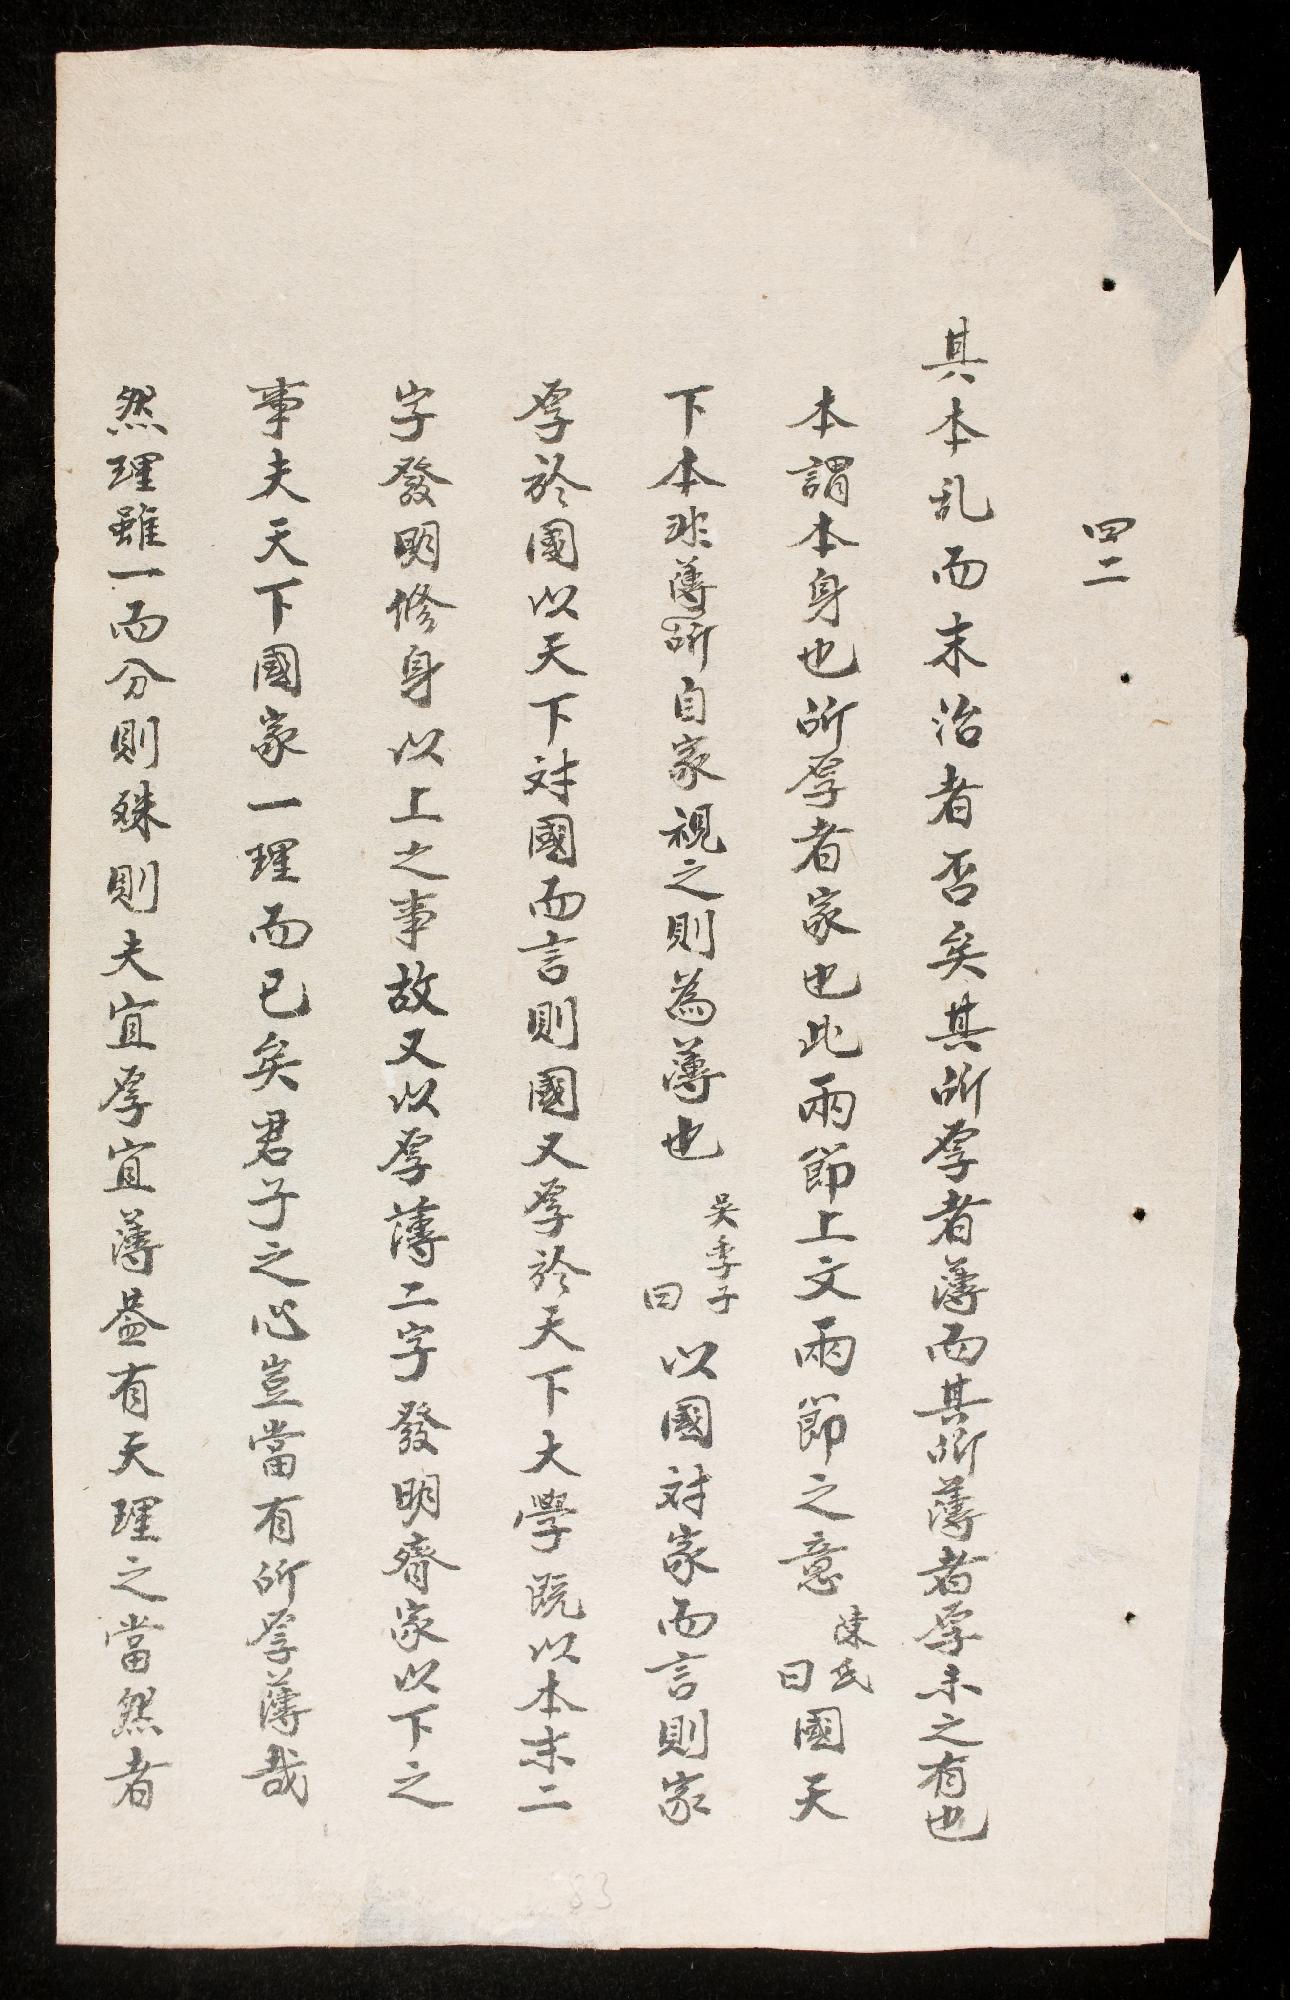 四二
其本乱而末治者否矣其所厚者薄而其所薄者厚未之有也
本謂本身也所厚者家也此兩節上文兩節之意陳氏曰國天
下本非薄所自家視之則為薄也吳季子曰以國对家而言則家
厚於國以天下对國而言則國又厚於天下大學既以本末二
字發明修身以上之事故又以厚薄二字發明齊家以下之
事夫天下國家一理而已矣君子之心豈當有所厚薄哉
然理雖一而分則殊則夫宜厚宜薄盖有天理之當然者
83